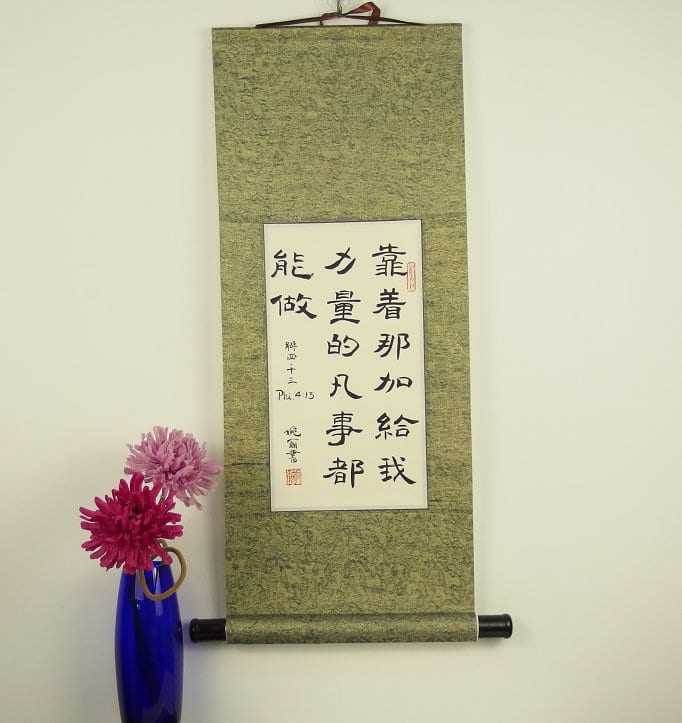 靠着那加給我
力量的凡事都
能做
腓四·十三
Phi. 4:13
書